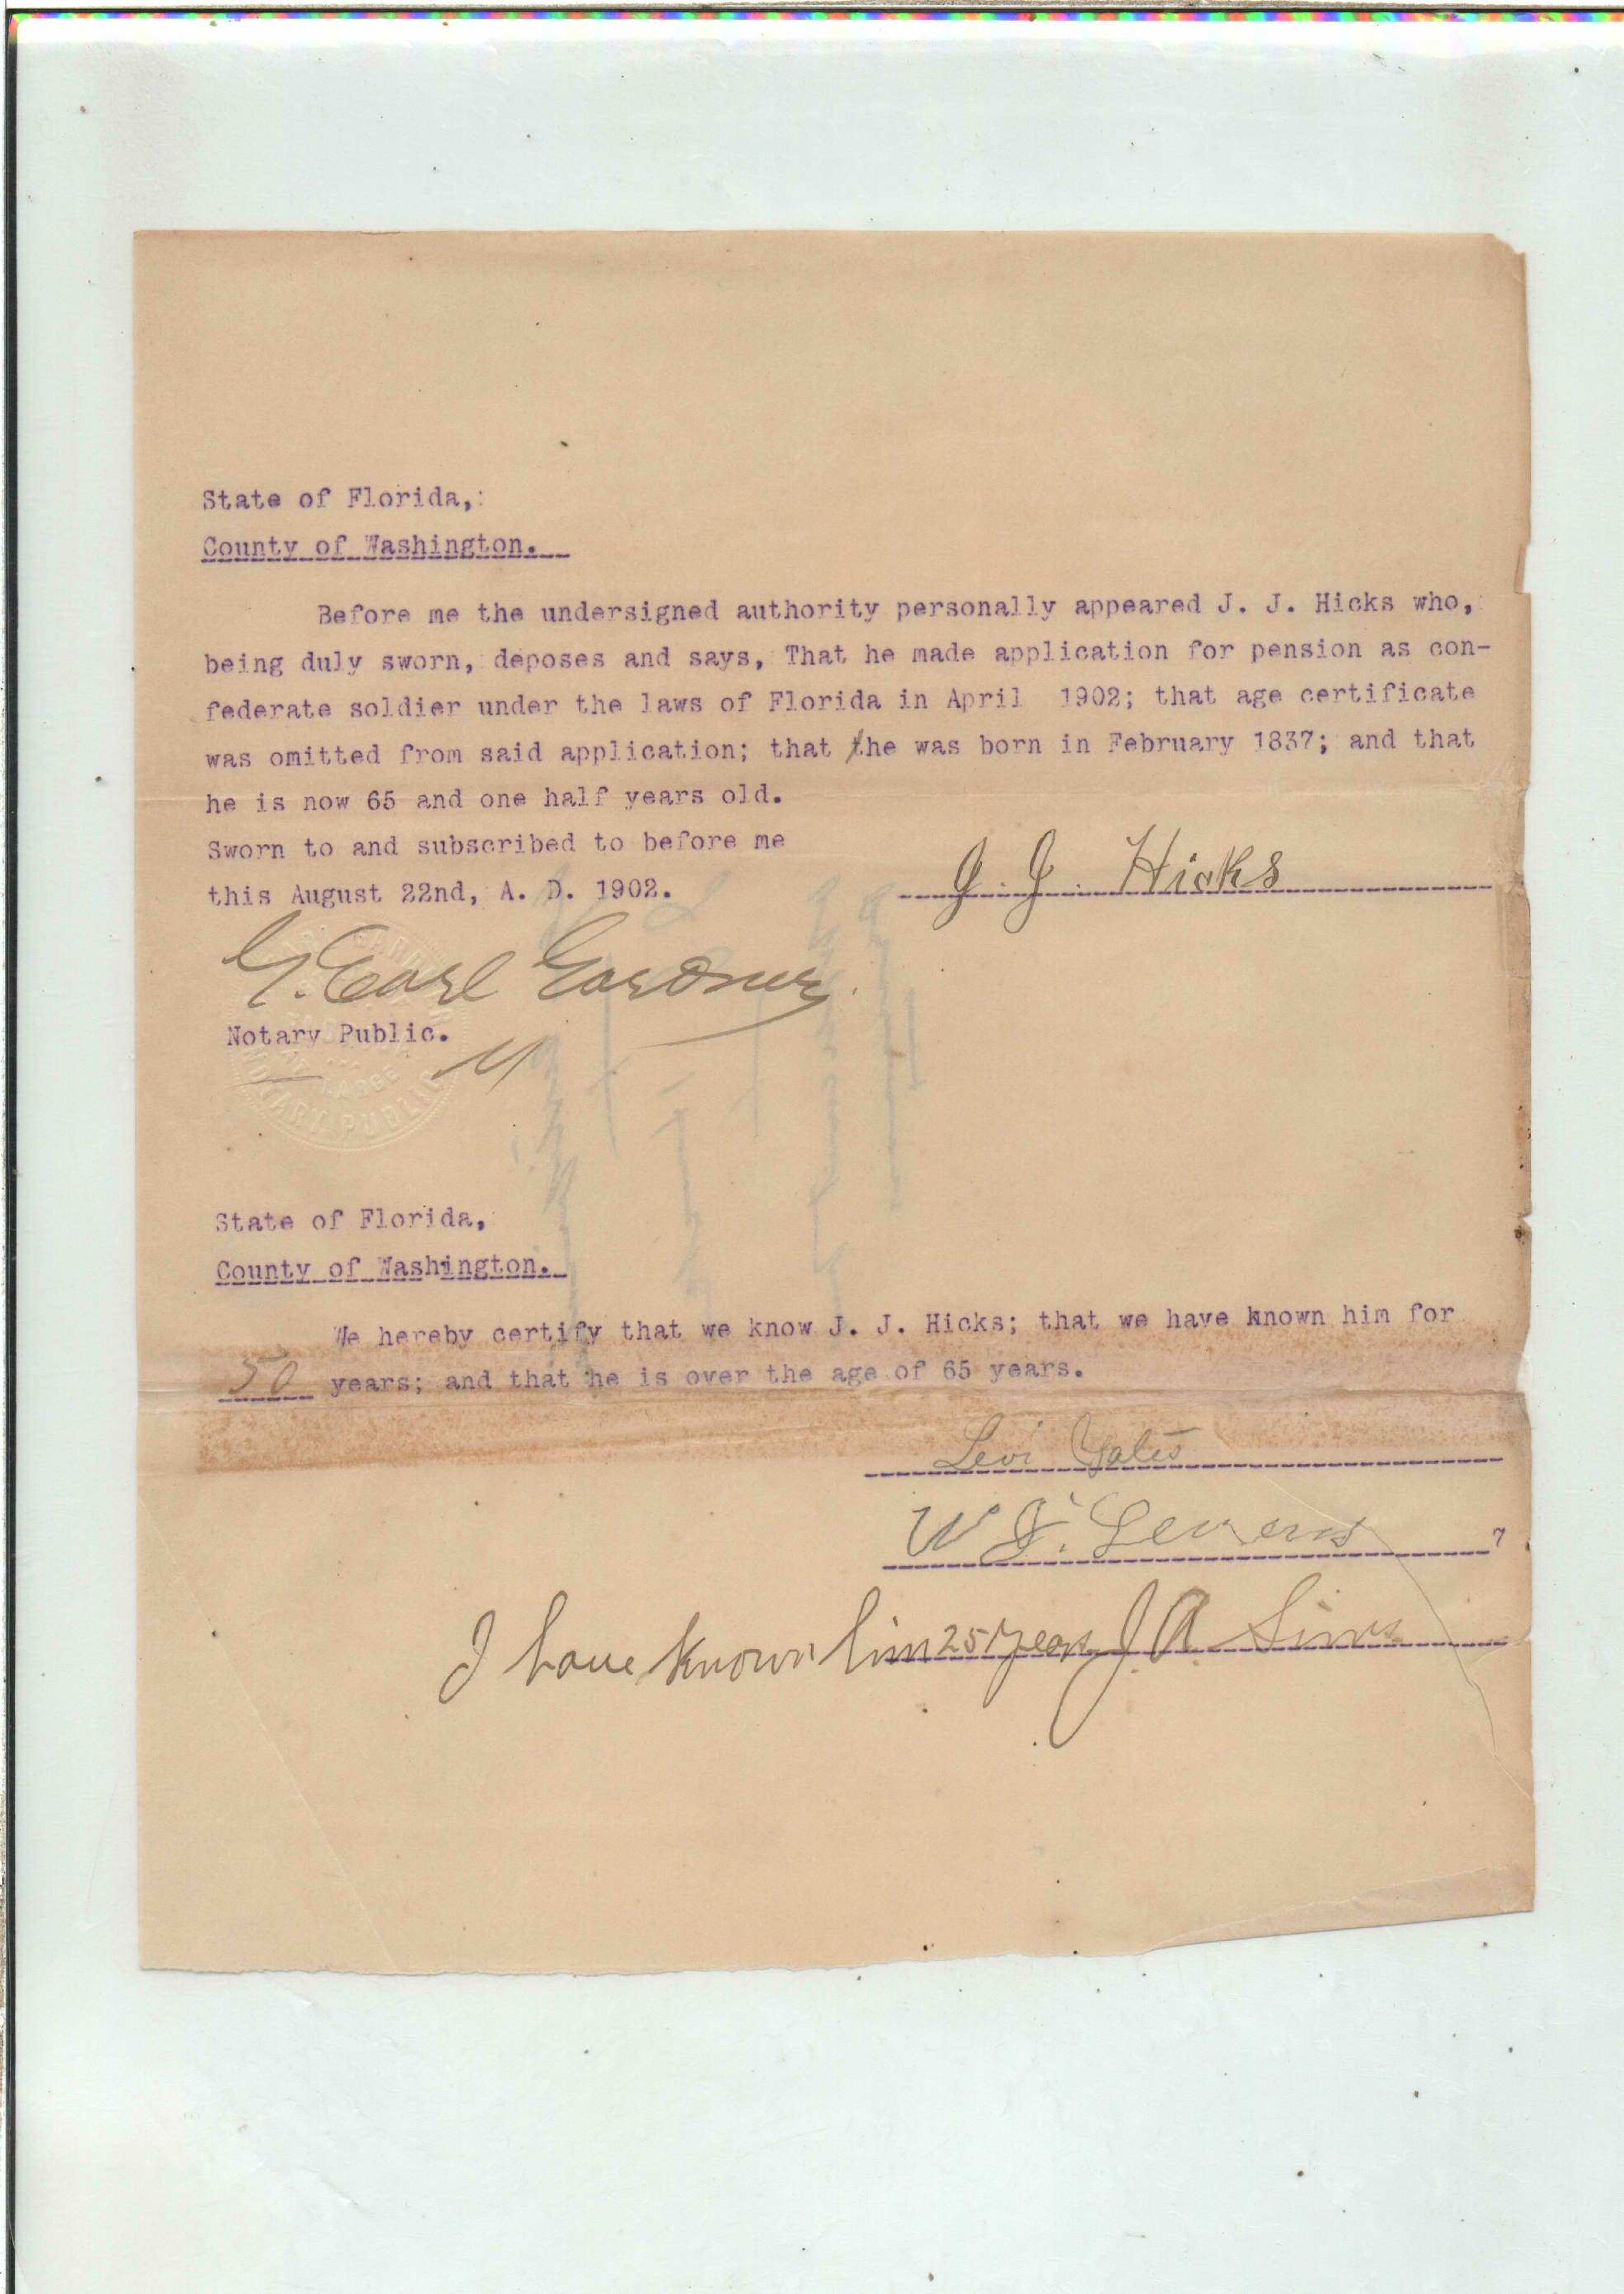 State of Florida,:
County of Washington.
Before me the undersigned authority personally appeared J. J. Hicks who,
being duly sworn, deposes and says, That he made application for pension as con-
federate soldier under the laws of Florida in April 1902; that age certificate
was omitted from said application; that he was born in February 1837; and that
he is now 65 and one half years old.
Sworn to and subscribed to before me
this August 22nd, A. D. 1902.
J. J. Hicks
G. Earl Gardner
Notary Public.
NOTARY PUBLIC
State of Florida,
County of Washington.
We hereby certify that we know J. J. Hicks; that we have known him for
50 years; and that he is over the age of 65 years.
Levi Yates
W J.
I have known him 25 years J. A. Sims